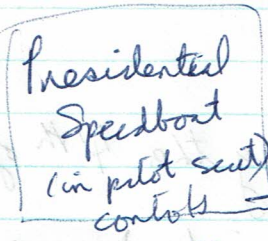 Presidential
Speedboat
(in pilot seat)
controls